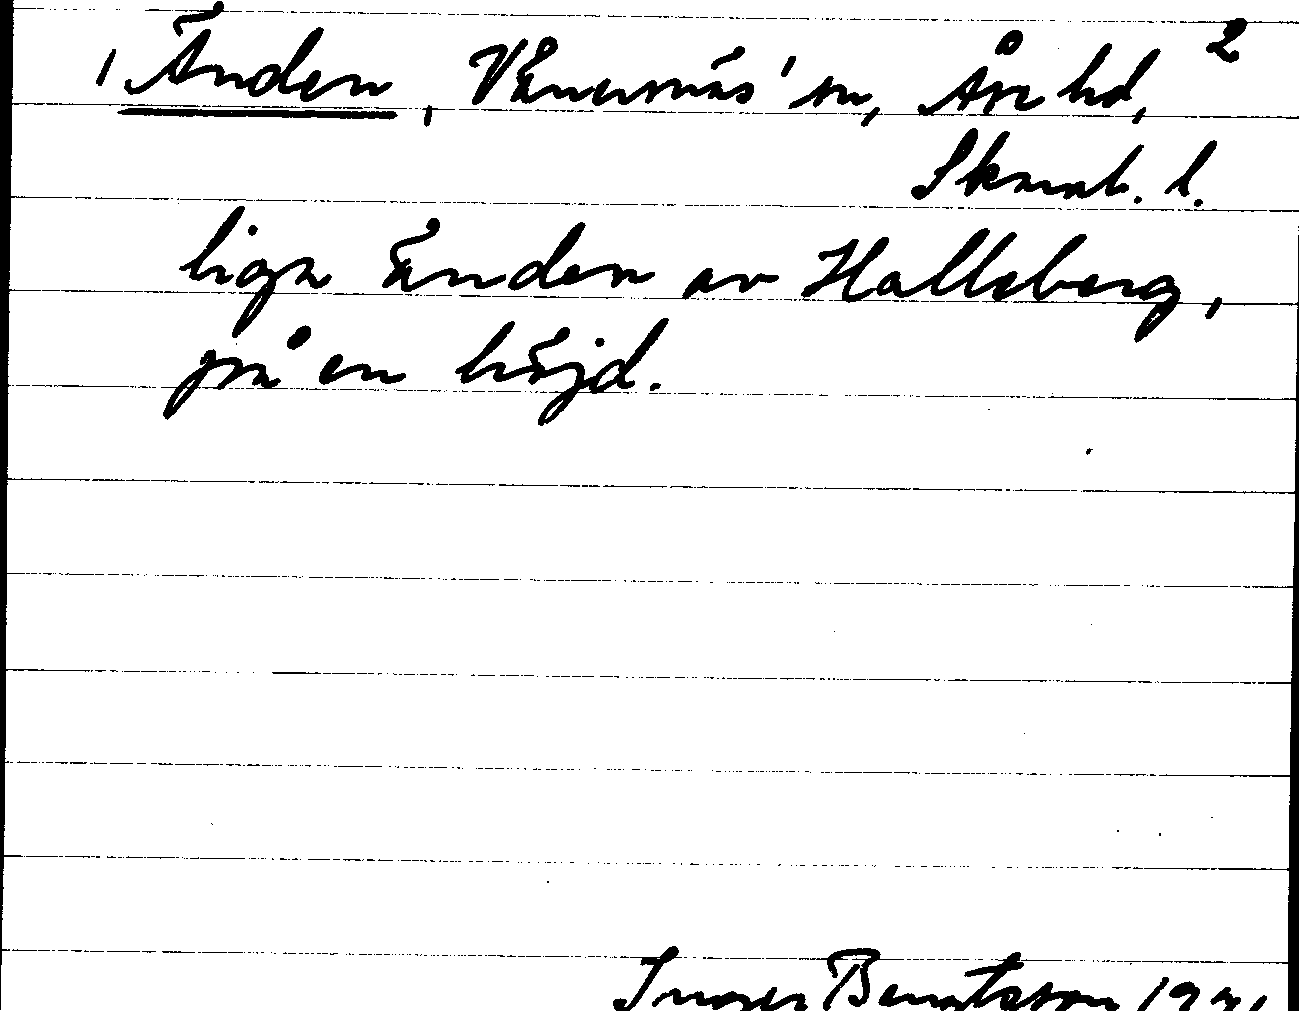 Änden, Vänersnäs sn, Åse hd, 2
Skarab. l.
liga änden av Halleberg,
på en höjd.
Inger Bengtsson